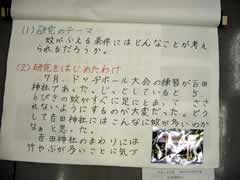 (1) 研究のテーマ
蚊がふえる条件にはどんなことが考え
られるだろうか。
(2) 研究をはじめたわけ
7月、ドッヂボール大会の練習が吉田
神社であった。じっとしていると
とびきの蚊がすぐに足にとまって ささ
れないようにするのが大変だった。どう
して吉田神社にはこんなに蚊が多いのか
なあと思った。
吉田神社のまわりには
竹やぶが多いことに気づ